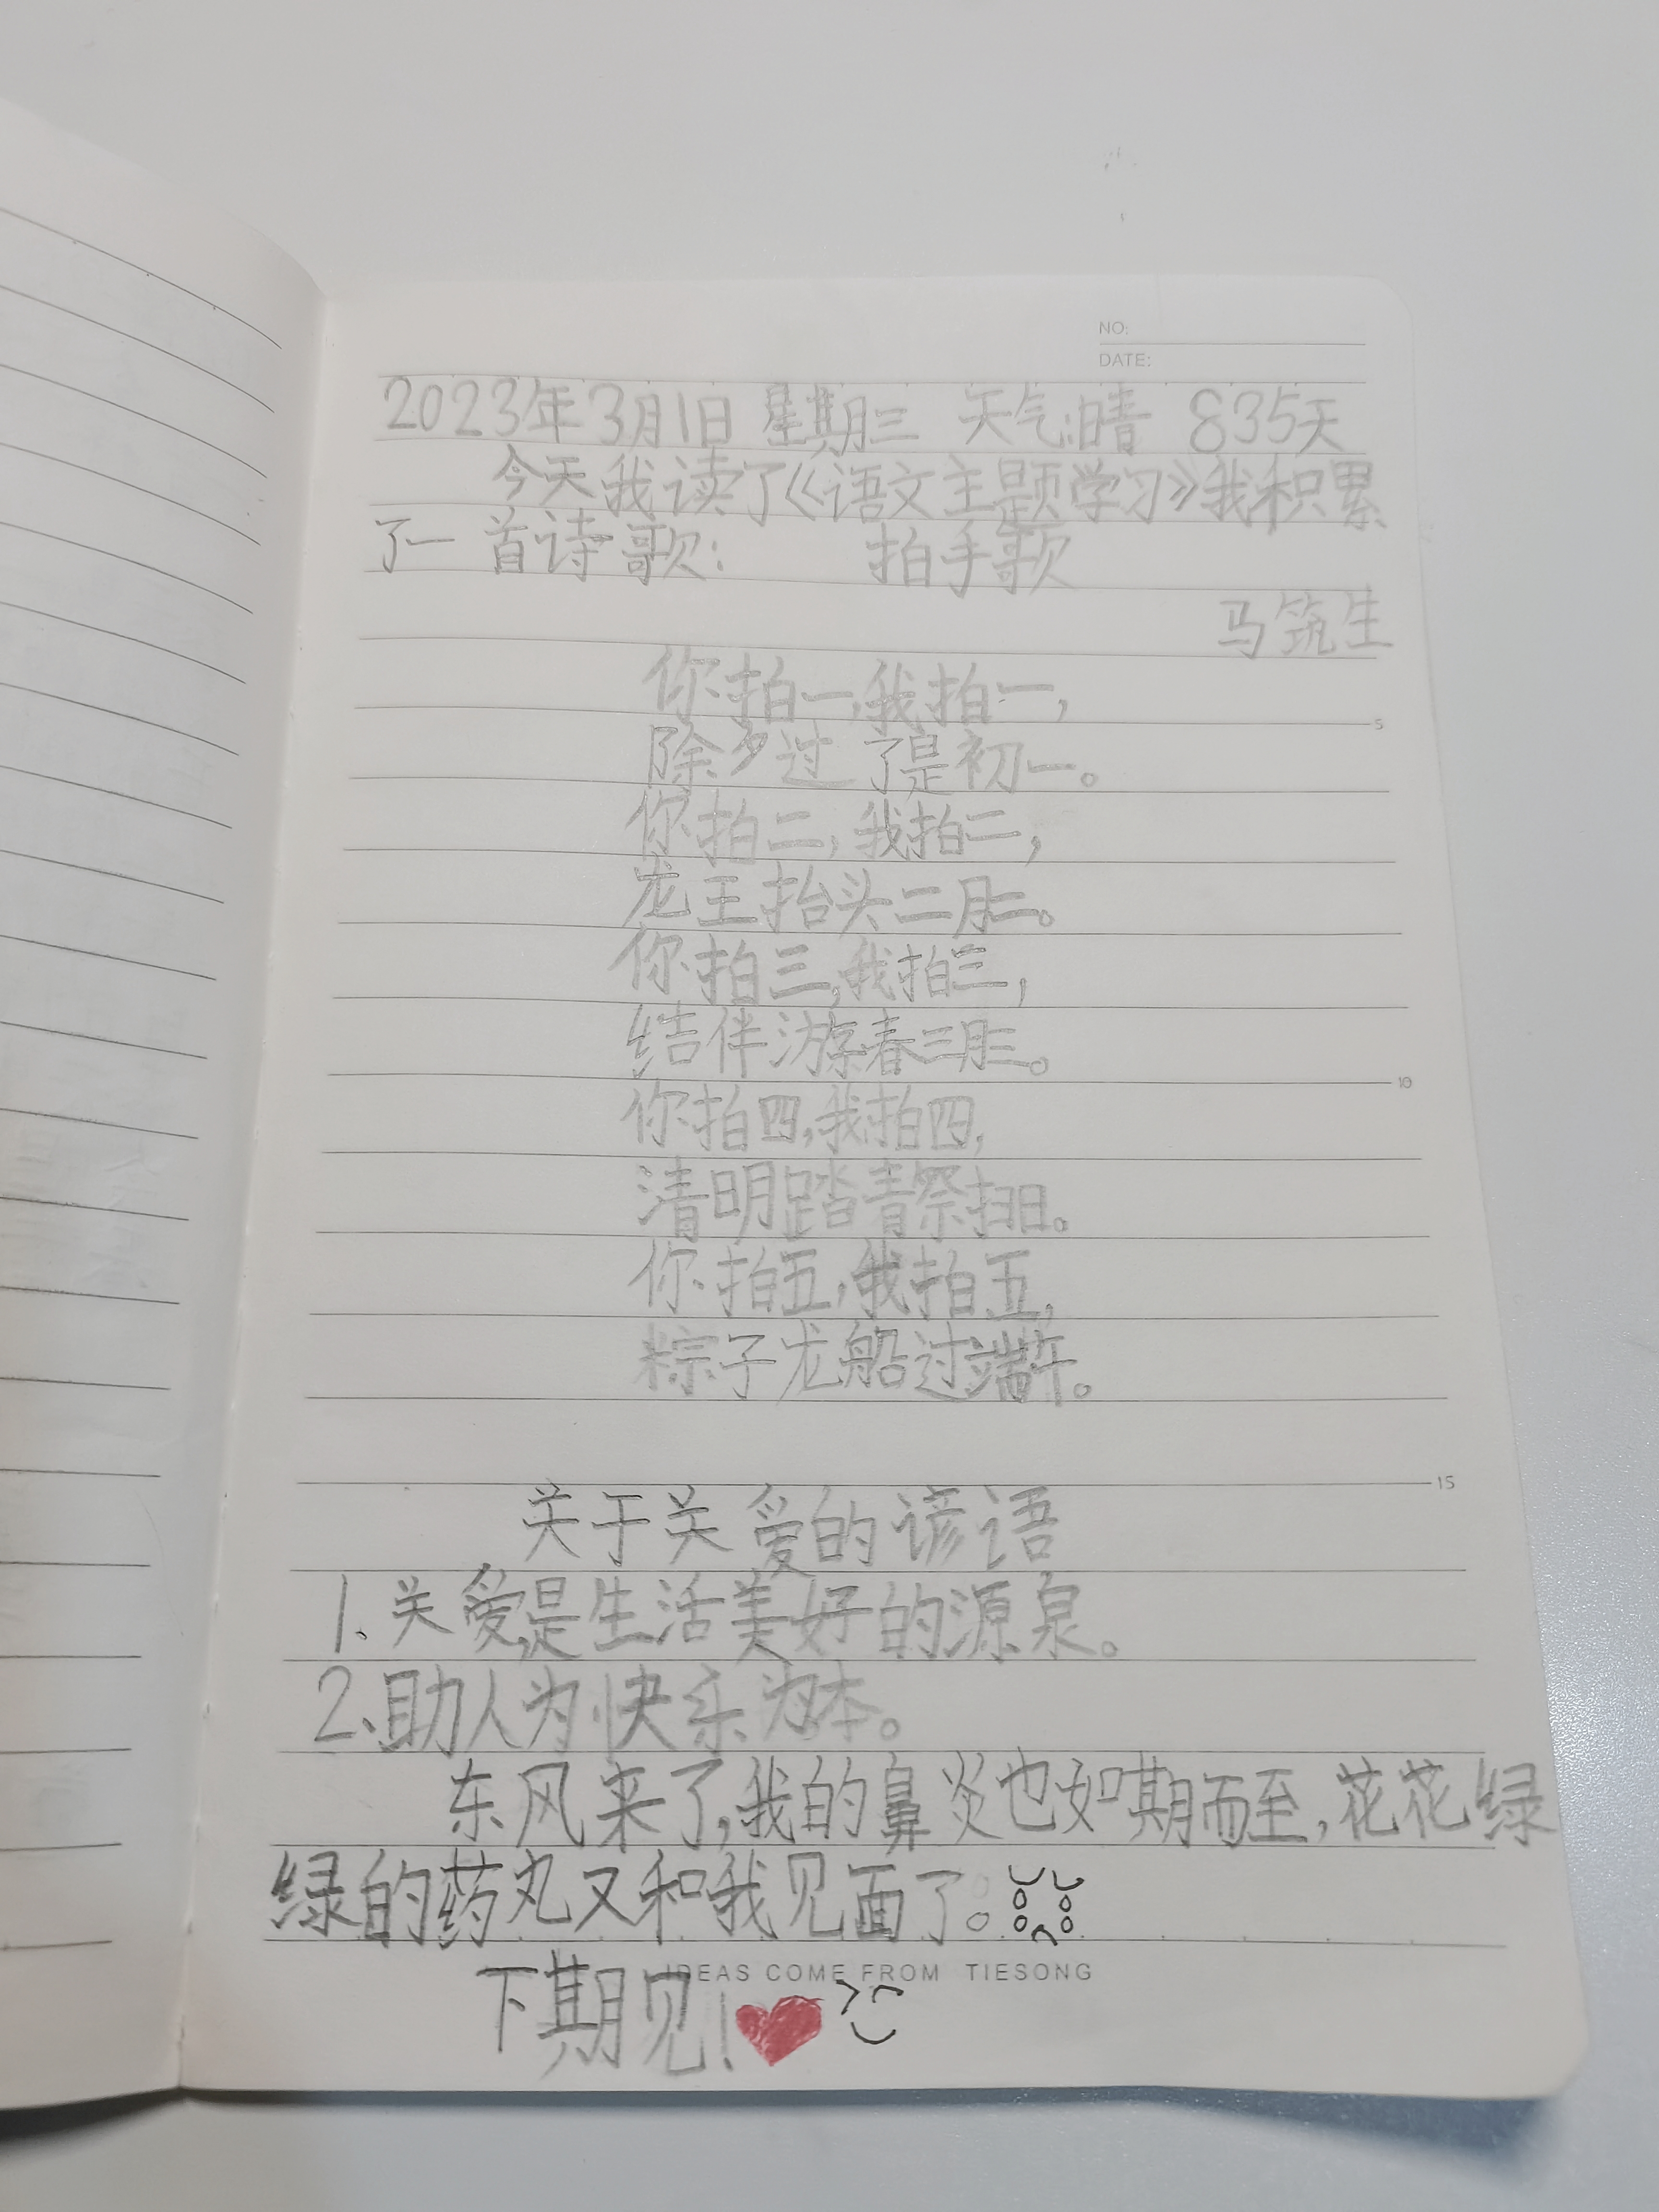 NO:
DATE:
2023年3月1日 星期三 天气:晴 835天
今天我读了《语文主题学习》我积累
了一首诗歌: 拍手歌
马筑生
你拍一,我拍一,
除夕过了是初一。
你拍二,我拍二,
龙王抬头二月二。
你拍三,我拍三,
结伴游春三月三。
5
你拍四,我拍四,
清明踏青祭扫日。
10
你拍五,我拍五,
粽子龙船过端午。
15
关于关爱的谚语
1.关爱是生活美好的源泉。
2、助人为快乐为本。
东风来了,我的鼻炎也如期而至,花花绿
绿的药丸又和我见面了。
IDEAS COME FROM TIESONG
下期见!